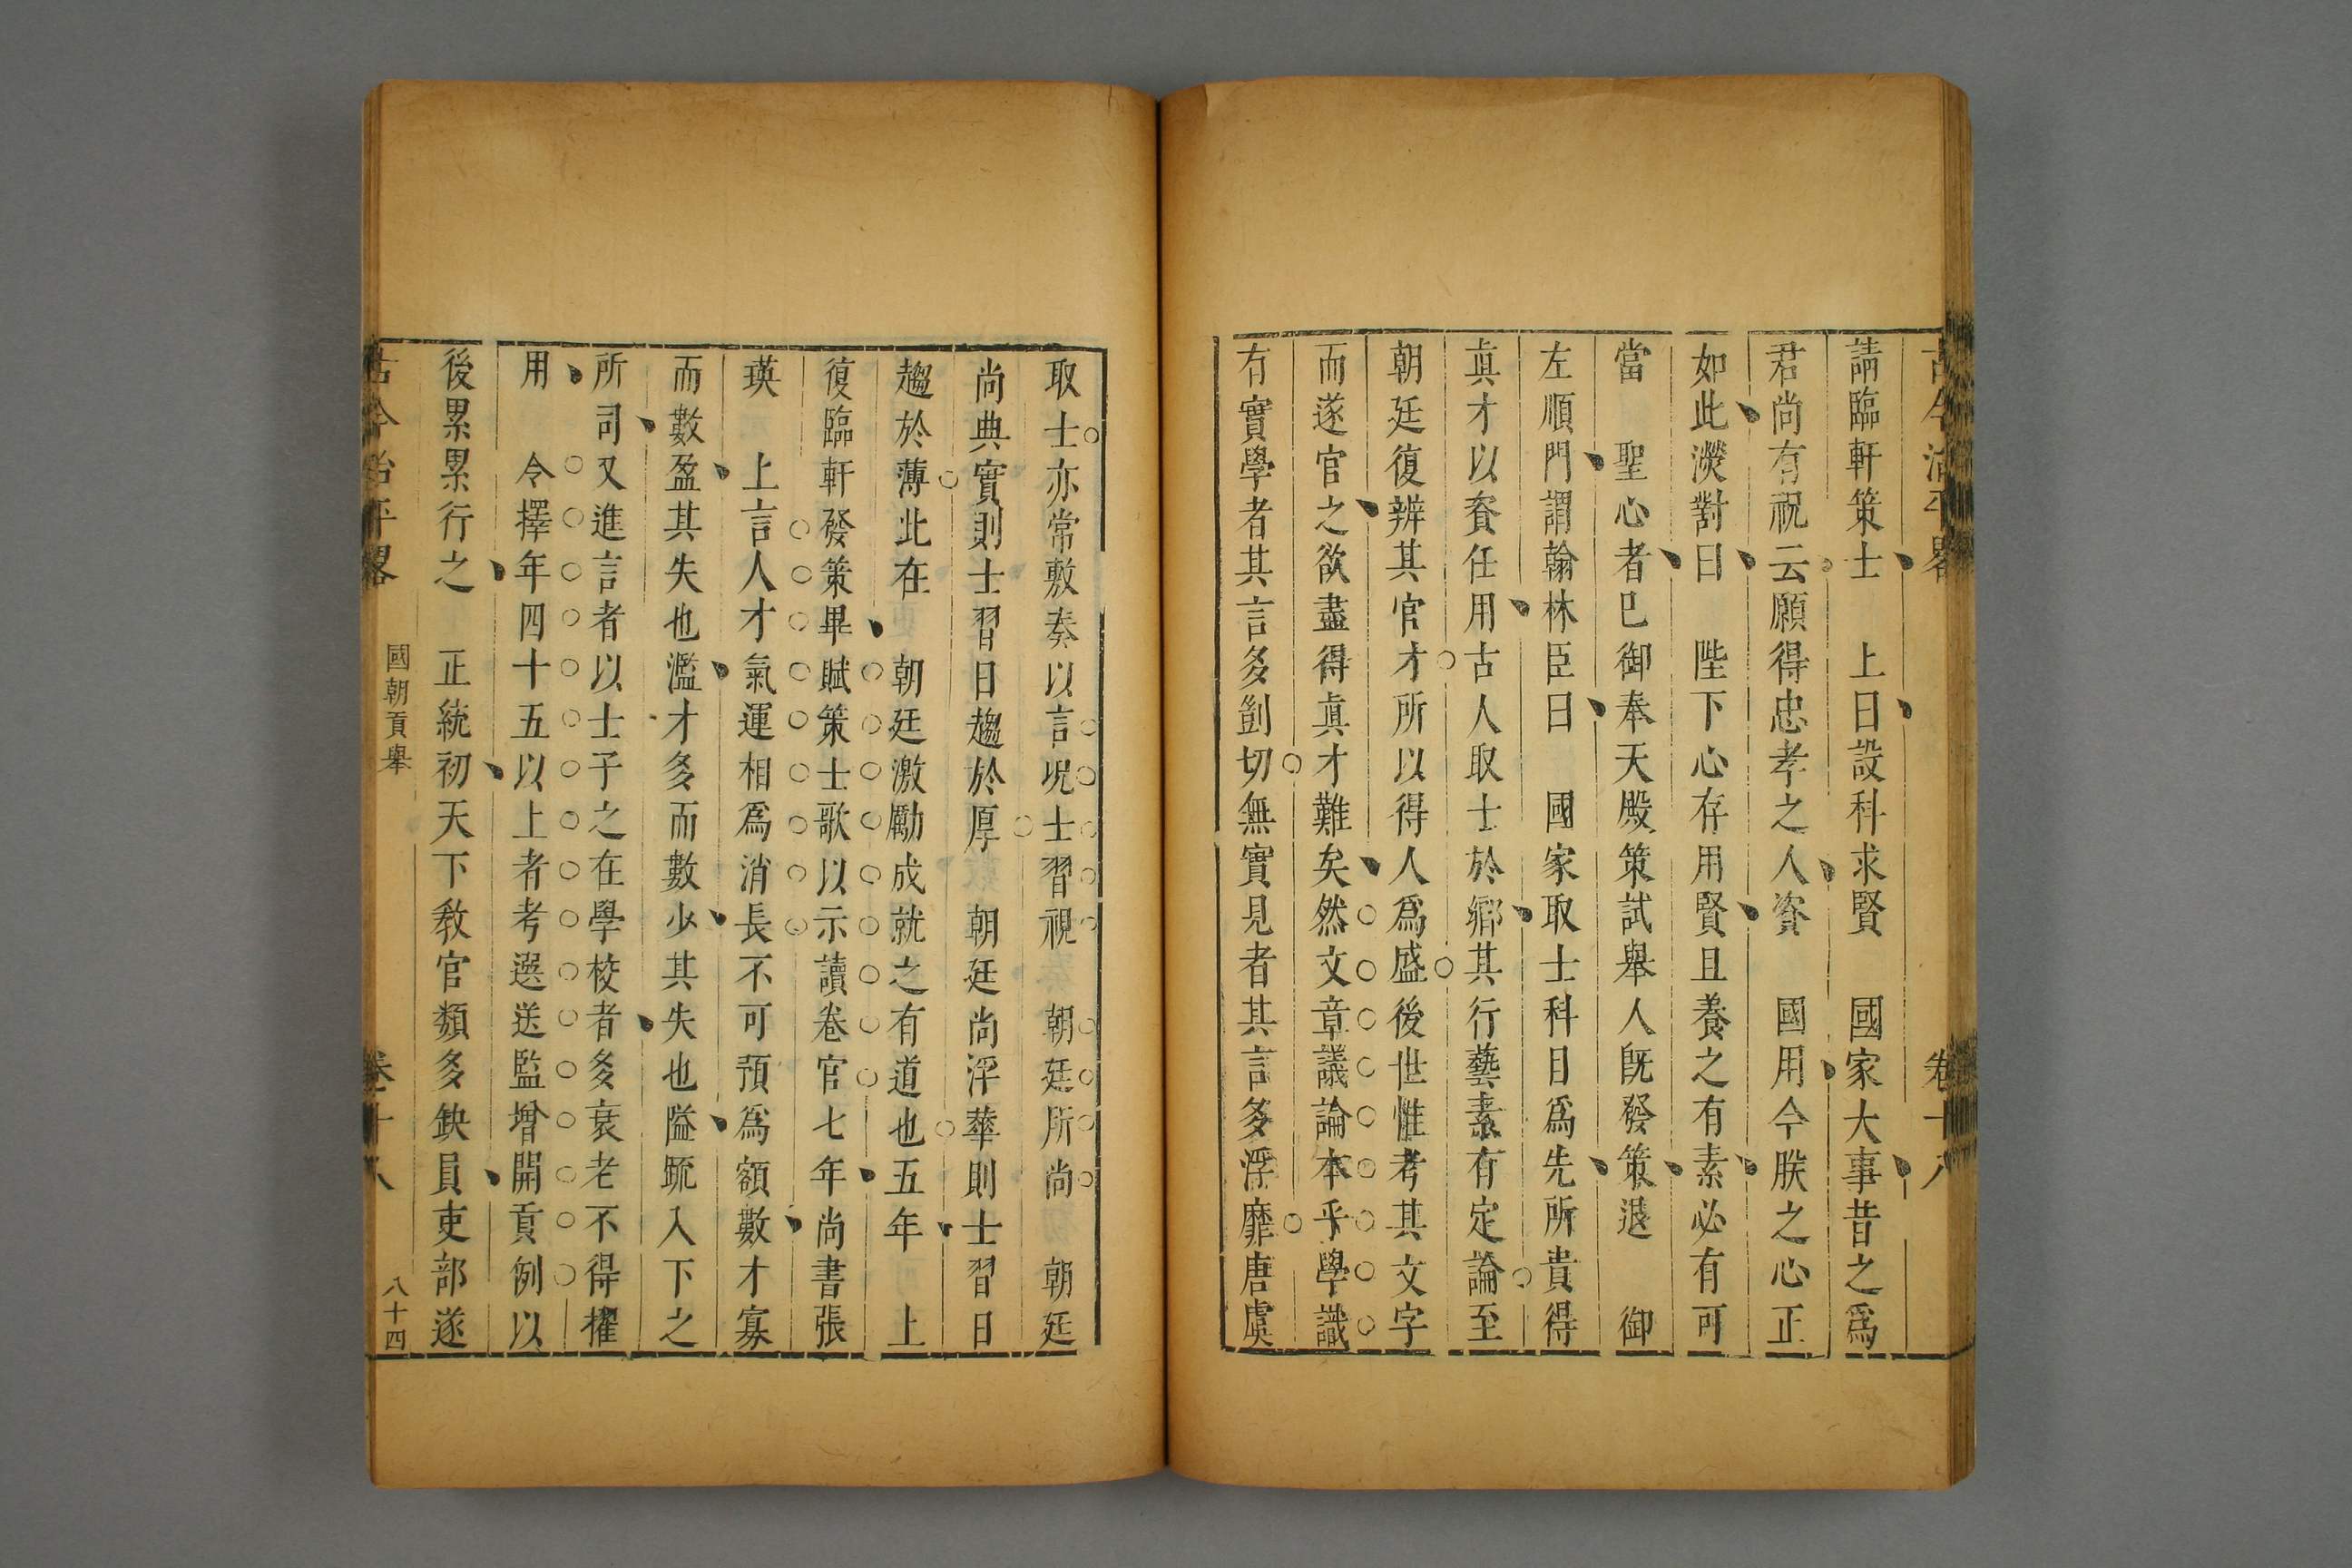 古今治平畧 卷十八
請臨軒策士 上曰設科求賢 國家大事昔之爲
君尚有祝云願得忠孝之人資 國用今朕之心正
如此濙對曰 陛下心存用賢且養之有素必有可
當 聖心者已御奉天殿策試舉人旣發策退 御
左順門謂翰林臣曰 國家取士科目爲先所貴得
眞才以資任用古人取士於鄉其行藝素有定論至
朝廷復辨其官才所以得人爲盛後世惟考其文字
而遂官之欲盡得眞才難矣然文章議論本乎學識
有實學者其言多剴切無實見者其言多浮靡唐虞
取士亦常敷奏以言況士習視 朝廷所尚 朝廷
尚典實則士習日趨於厚 朝廷尚浮華則士習日
趨於薄此在 朝廷激勵成就之有道也五年 上
復臨軒發策畢賦策士歌以示讀卷官七年尚書張
瑛 上言人才氣運相爲消長不可預爲額數才寡
而數盈其失也濫才多而數少其失也隘疏入下之
所司又進言者以士子之在學校者多衰老不得擢
用 令擇年四十五以上者考選送監增開貢例以
後累累行之 正統初天下敎官類多缺員吏部遂
古今治平畧 國朝貢舉 卷十八 八十四